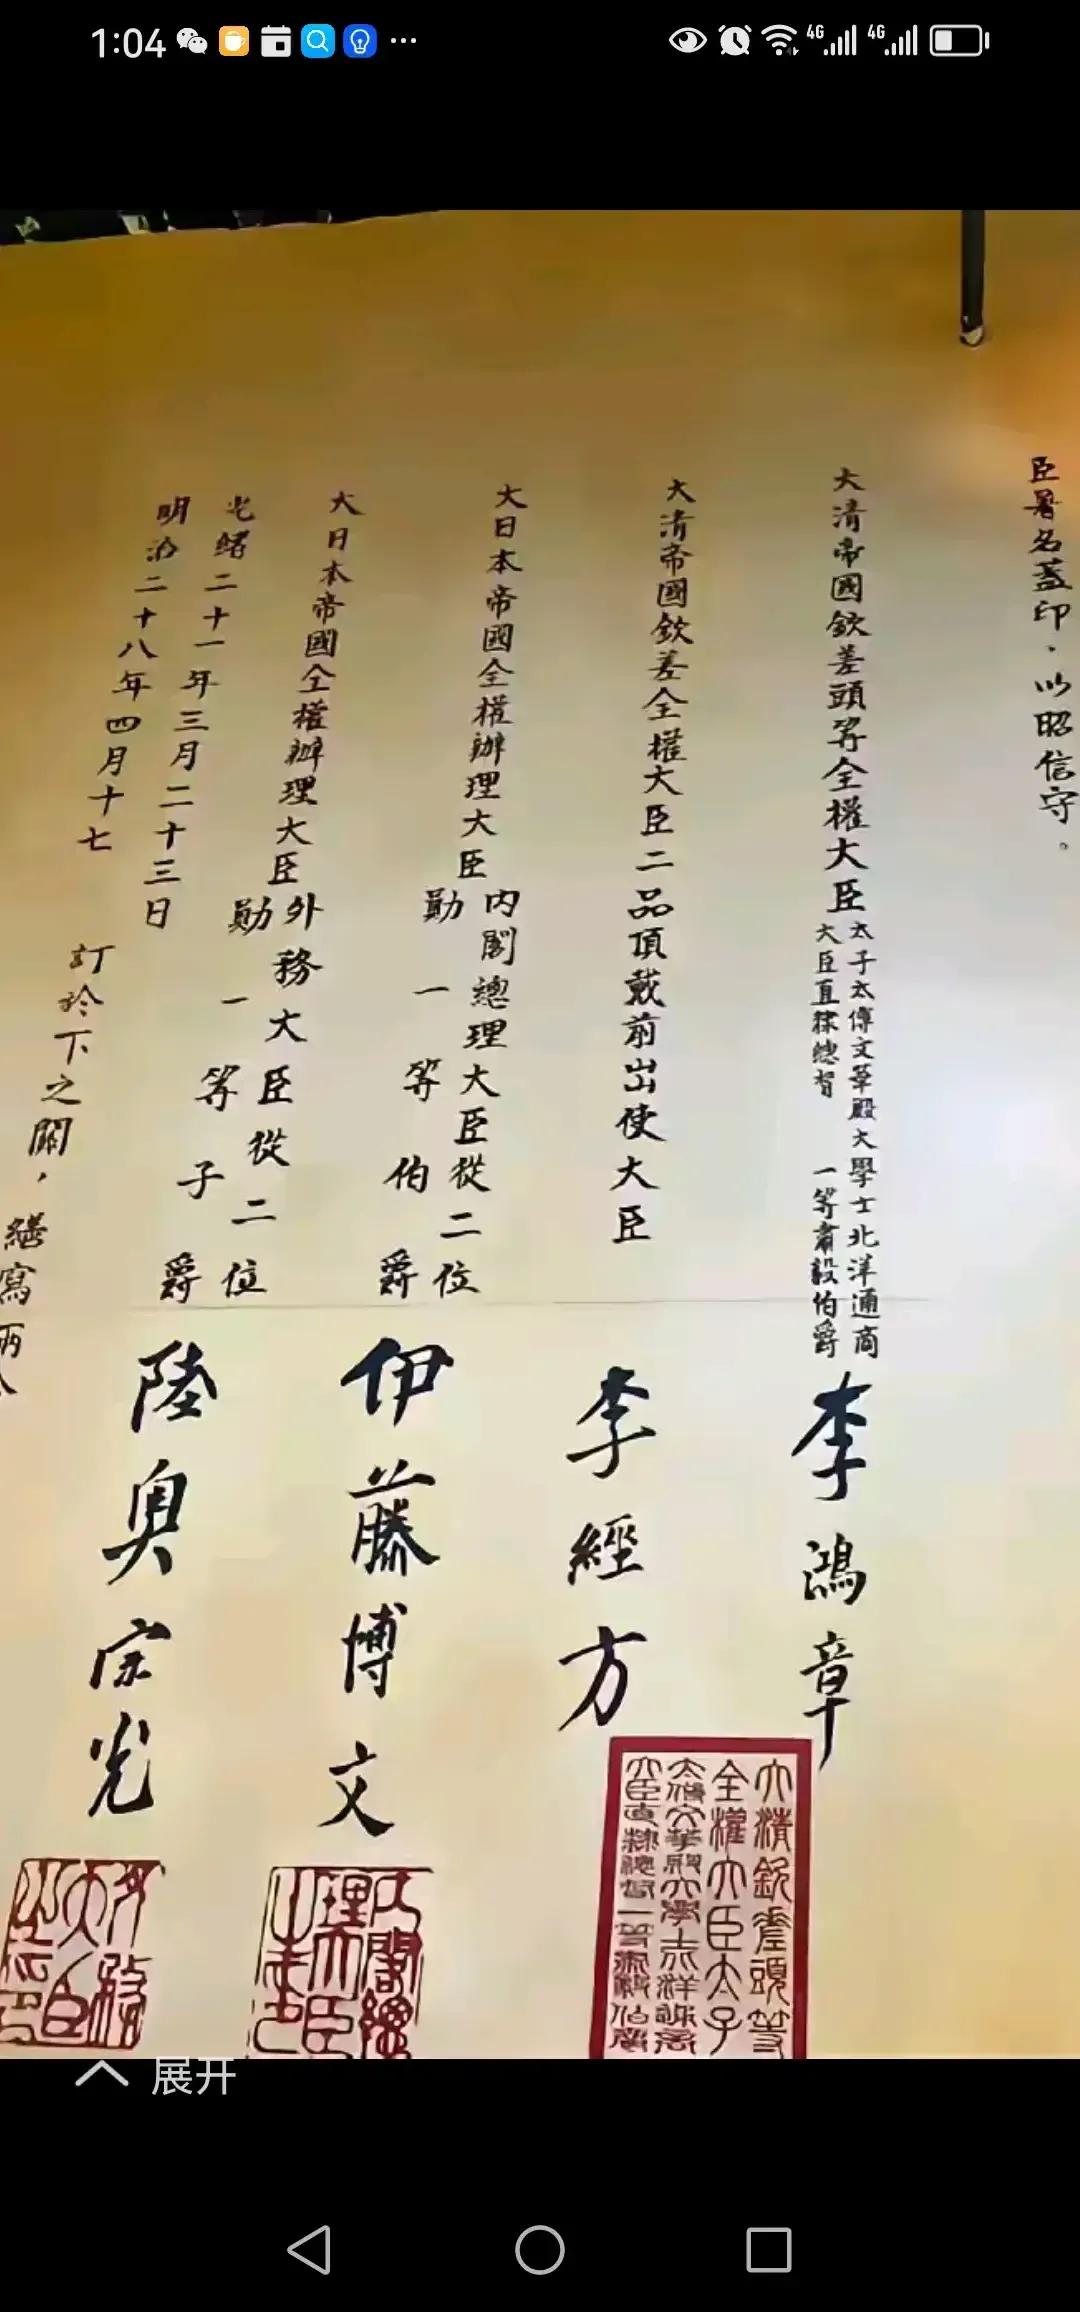 1:04
4G
4G
臣署名蓋印、以昭信守。
大清帝國欽差頭等全權大臣
太子太傅文華殿大學士北洋通商
大臣直隸總督 一等肅毅伯爵
李鴻章
大清帝國欽差全權大臣二品頂戴前出使大臣
李經方
大日本帝國全權辦理大臣
內閣總理大臣從二位
勳一等伯爵
伊藤博文
大日本帝國全權辦理大臣
外務大臣從二位
勳一等子爵
陸奥宗光
光緒二十一年三月二十三日
明治二十八年四月十七
訂於下之關，繕寫兩
大清欽差頭等
全權大臣太子
太傅文華殿大學士北洋通商
大臣直隸總督一等肅毅伯爵
內閣總
理大臣
之印
外務
大臣
之印
展开